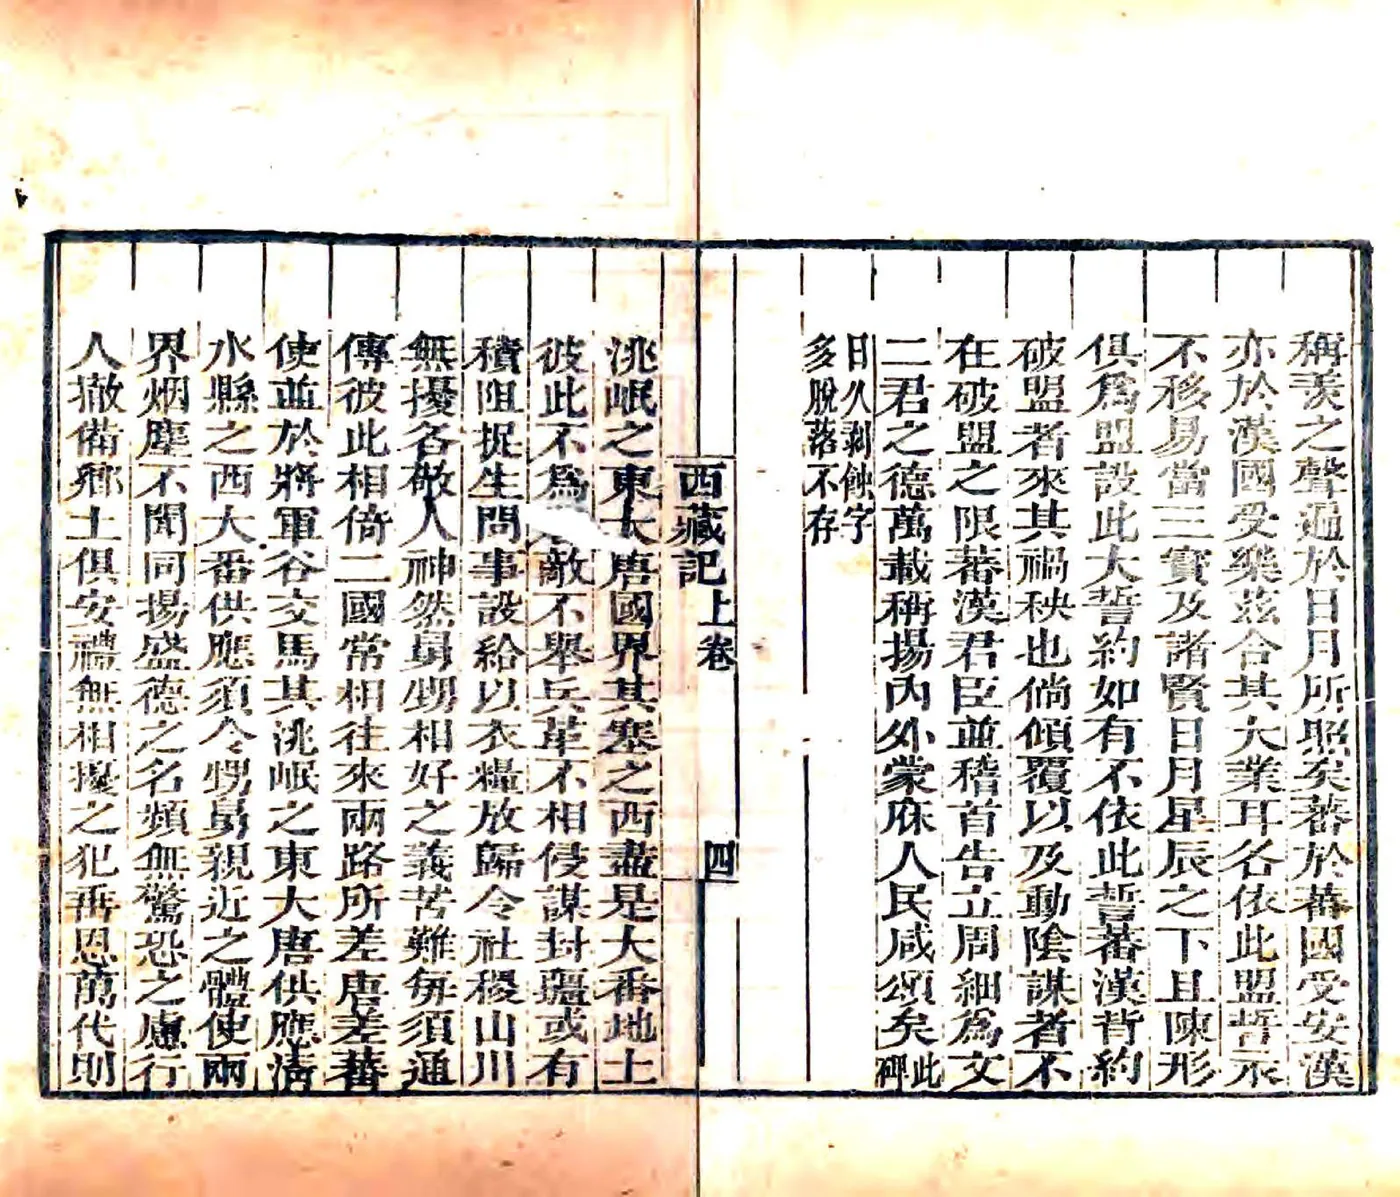 稱羡之聲遍於日月所照矣蕃於蕃國受安漢
亦於漢國受樂茲合其大業耳名依此盟誓永
不移易當三寶及諸賢日月星辰之下且陳形
俱爲盟設此大誓約如有不依此誓蕃漢背約
破盟者來其禍秧也倘傾覆以及動陰謀者不
在破盟之限蕃漢君臣並稽首告立周細爲文
二君之德萬載稱揚內外蒙庥人民咸頌矣此碑
日久剥蝕字
多脫落不存
西藏記上卷 四
洮岷之東大唐國界其塞之西盡是大番地土
彼此不爲敵不舉兵革不相侵謀封疆或有
積阻捉生問事設給以衣糧放歸令社稷山川
無擾各敬人神然舅甥相好之義苦難每須通
傳彼此相倚二國常相往來兩路所差唐差蕃
使並於將軍谷交馬其洮岷之東大唐供應清
水縣之西大番供應須令甥舅親近之體使兩
界烟塵不聞同揚盛德之名頻無驚恐之慮行
人撤備鄉土俱安禮無相擾之犯垂恩萬代則